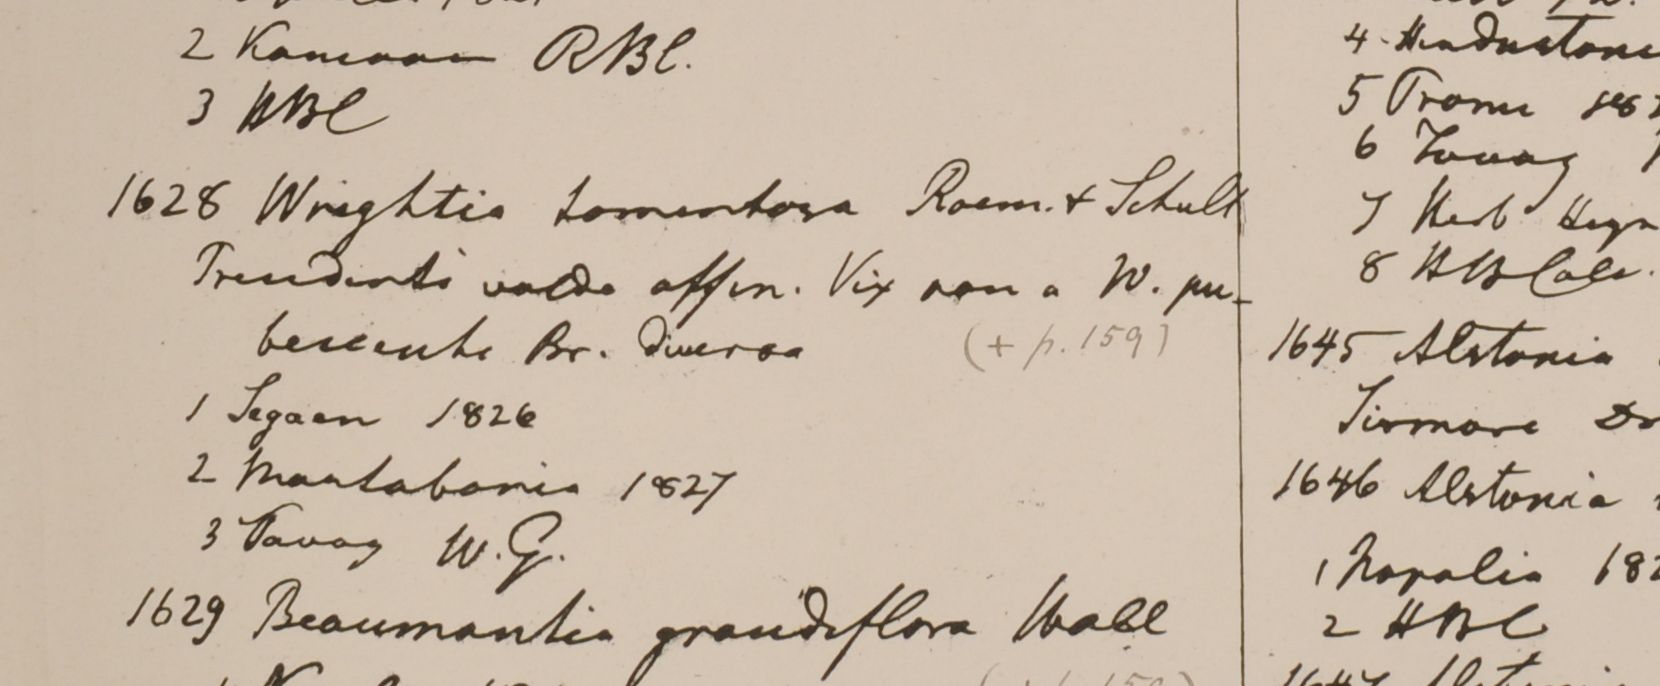 2 Kamaon RBC.
3 HBC
1628 Wrightia tomentosa Roem. & Schult
Precedenti valde affin. Vix non a W. pu-
bescente Br. diversa (+ p. 159)
1 Segaen 1826
2 Martabania 1827
3 Tavoy W.G.
1629 Beaumontia grandiflora Wall
4 Hindustani
5 Prome 182
6 Tavoy
7 Herb Heyn
8 HBCalc.
1645 Alstonia
Sirmore
1646 Alstonia
1 Napalia 182
2 HBC